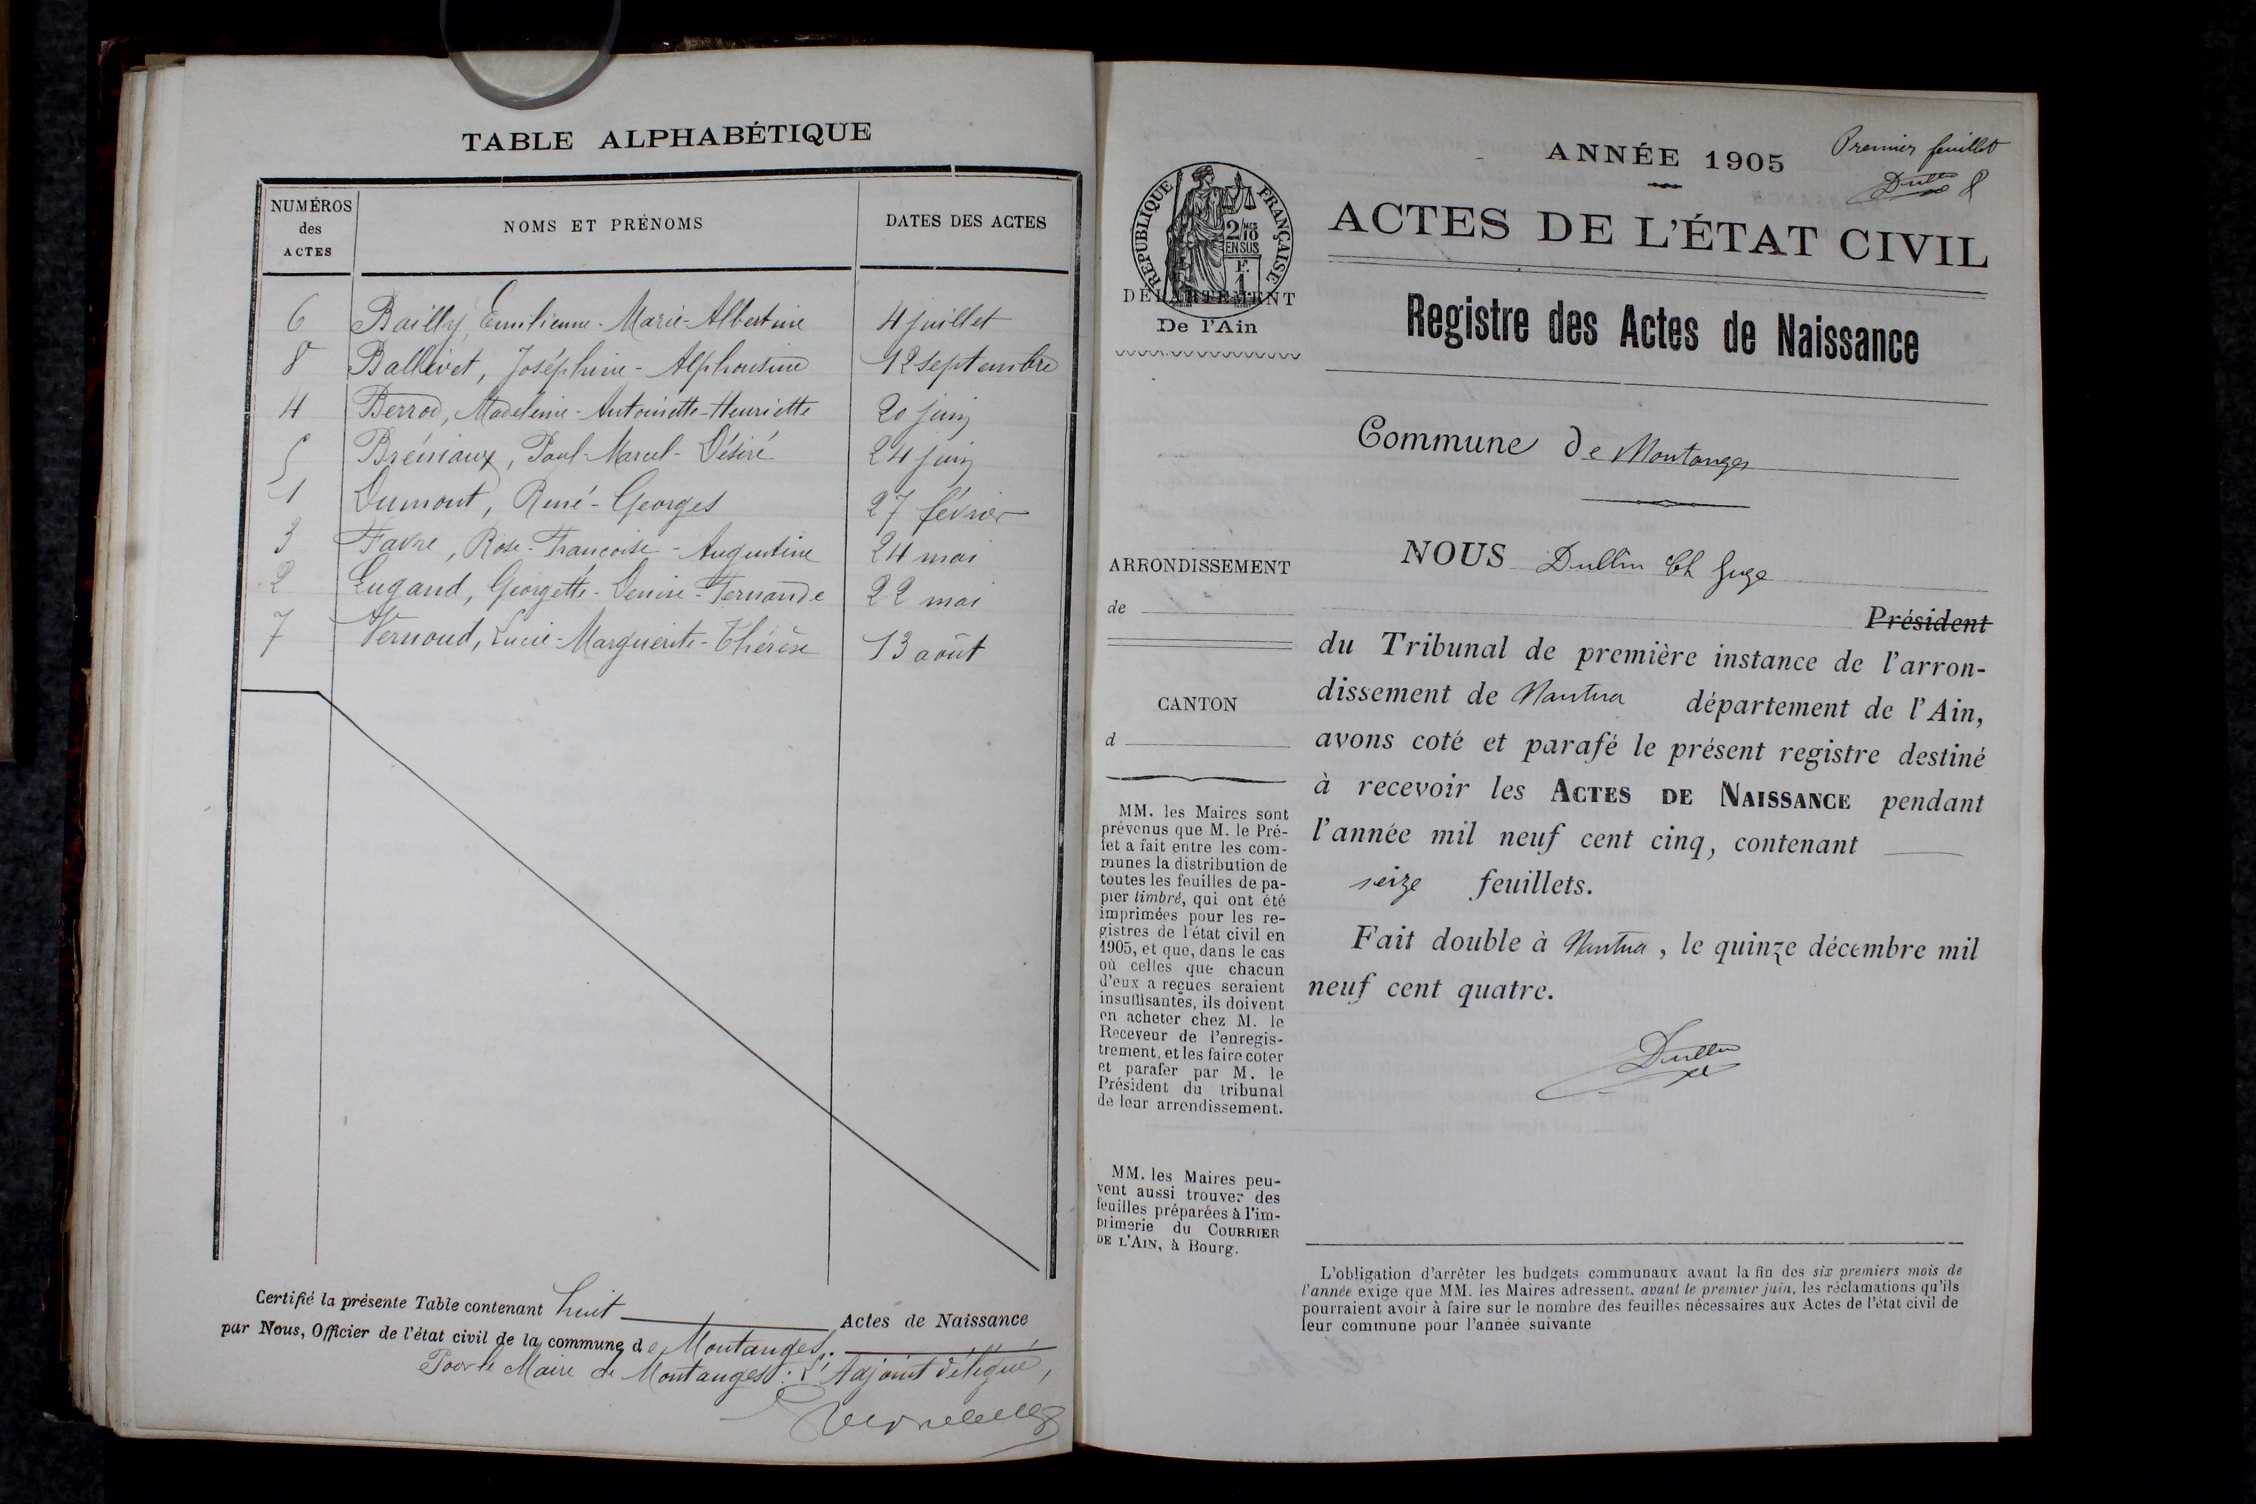 TABLE ALPHABÉTIQUE
NUMÉROS des ACTES
NOMS ET PRÉNOMS
DATES DES ACTES
6 Bailly, Emilienne-Marie-Albertine 4 juillet
8 Ballivet, Joséphine-Alphonsine 12 septembre
4 Berrod, Madeleine-Antoinette-Henriette 20 juin
5 Bréniaux, Paul-Marcel-Désiré 24 juin
1 Dumont, René-Georges 27 février
3 Favre, Rose-Françoise-Augustine 24 mai
2 Lugand, Georgette-Denise-Fernande 22 mai
7 Vernoud, Lucie-Marguerite-Thérèse 13 août
Certifié la présente Table contenant huit Actes de Naissance
par Nous, Officier de l'état civil de la commune de Montanges.
Pour le Maire de Montanges: L'Adjoint délégué,
Premier feuillet
Dullin
ANNÉE 1905
ACTES DE L'ÉTAT CIVIL
Registre des Actes de Naissance
RÉPUBLIQUE FRANÇAISE
2/10 EN SUS
F. 1
DÉPARTEMENT
De l'Ain
Commune de Montanges
ARRONDISSEMENT
de
CANTON
d
MM. les Maires sont
prévenus que M. le Pré-
fet a fait entre les com-
munes la distribution de
toutes les feuilles de pa-
pier timbré, qui ont été
imprimées pour les re-
gistres de l'état civil en
1905, et que, dans le cas
où celles que chacun
d'eux a reçues seraient
insuffisantes, ils doivent
en acheter chez M. le
Receveur de l'enregis-
trement, et les faire coter
et parafer par M. le
Président du tribunal
de leur arrondissement.
MM. les Maires peu-
vent aussi trouver des
feuilles préparées à l'im-
primerie du COURRIER
DE L'AIN, à Bourg.
NOUS Dullin Ch Juge
Président
du Tribunal de première instance de l'arron-
dissement de Nantua département de l'Ain,
avons coté et parafé le présent registre destiné
à recevoir les ACTES DE NAISSANCE pendant
l'année mil neuf cent cinq, contenant
seize feuillets.
Fait double à Nantua, le quinze décembre mil
neuf cent quatre.
Dullin
L'obligation d'arrêter les budgets communaux avant la fin des six premiers mois de
l'année exige que MM. les Maires adressent, avant le premier juin, les réclamations qu'ils
pourraient avoir à faire sur le nombre des feuilles nécessaires aux Actes de l'état civil de
leur commune pour l'année suivante